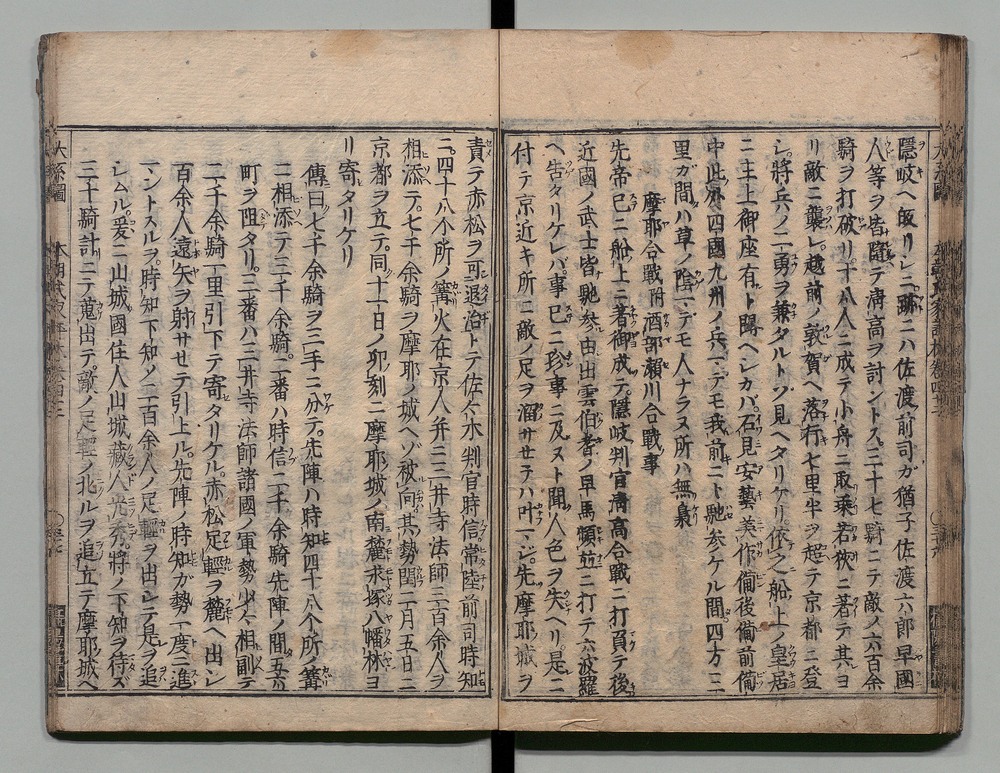 隠岐ヘ皈リシニ跡ニハ佐渡前司ガ猶子佐渡六郎早國
人等ヲ皆随テ清高ヲ討ントス三十七騎ニテ敵ノ六百余
騎ヲ打破リ十八人ニ成テ小舟ニ取乗若狭ニ著テ其ヨ
リ敵ニ襲レ越前ノ敦賀ヘ落行七里半ヲ越テ京都ニ登
シ將兵ノ二勇ヲ兼タルトゾ見ヘタリケリ依之船上ノ皇居
ニ主上御座有ト聞ヘシカバ石見安藝美作備後備前備
中此外四國九州ノ兵マデモ我前ニト馳参ケル間四方三
里ガ間ハ草ノ陰マデモ人ナラヌ所ハ無梟
摩耶合戰附酒部瀬川合戰事
先帝已ニ船上ニ著御成テ隠岐判官清高合戰ニ打負テ後
近國ノ武士皆馳参由出雲伯耆ノ早馬頻並ニ打テ六波羅
ヘ告タリケレバ事已ニ珍事ニ及ヌト聞人色ヲ失ヘリ是ニ
付テ京近キ所ニ敵ノ足ヲ溜サセテハ叶マジ先摩耶城ヲ
責テ赤松ヲ可退治トテ佐々木判官時信常陸前司時知
ニ四十八个所ノ篝火在京人并三井寺法師三百余人ヲ
相添テ七千余騎ヲ摩耶ノ城ヘゾ被向其勢閏二月五日ニ
京都ヲ立テ同十一日ノ卯刻ニ摩耶城ノ南麓求塚八幡林ヨ
リ寄タリケリ
傳曰七千余騎ヲ三手ニ分テ先陣ハ時知四十八个所ノ篝
ニ相添テ三千余騎二番ハ時信二千余騎先陣ノ間五六
町ヲ阻タリ三番ハ三井寺法師諸國ノ軍勢少々相副テ
二千余騎一里引下テ寄タリケル赤松足輕ヲ麓ヘ出シ
百余人遠矢ヲ射サセテ引上ル先陣ノ時知ガ勢一度ニ進
マントスルヲ時知下知メ二百余人ノ足輕ヲ出シテ是ヲ追
シムル爰ニ山城國住人山城藏人光秀將ノ下知ヲ待ズ
三十騎計ニテ蒐出テ敵ノ足輕ノ北ルヲ追立テ摩耶城ヘ